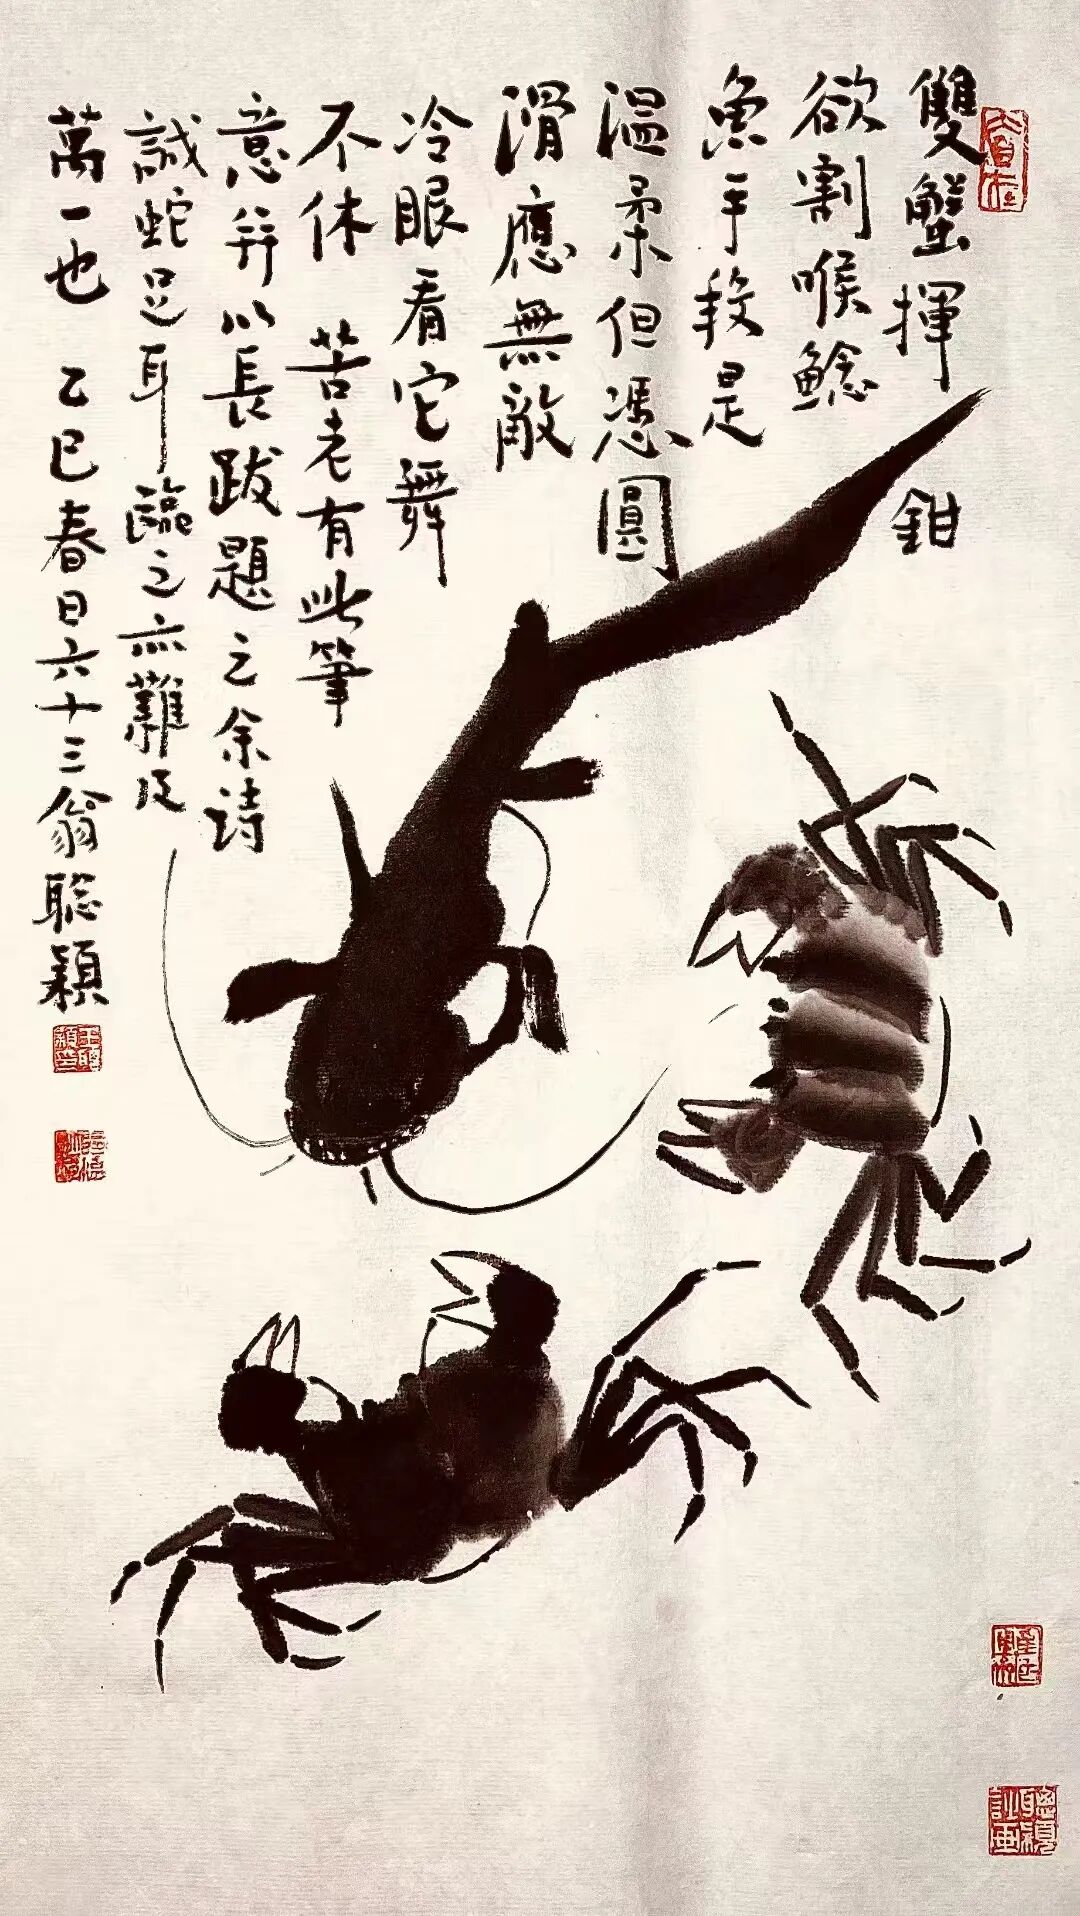 雙蟹揮鉗
欲割喉鯰
魚手段是
温柔但憑圓
滑應無敵
冷眼看它舞
不休 苦老有此筆
意并以長跋題之余诗
誠蛇足耳臨之亦難及
萬一也 乙巳春日六十三翁聪穎